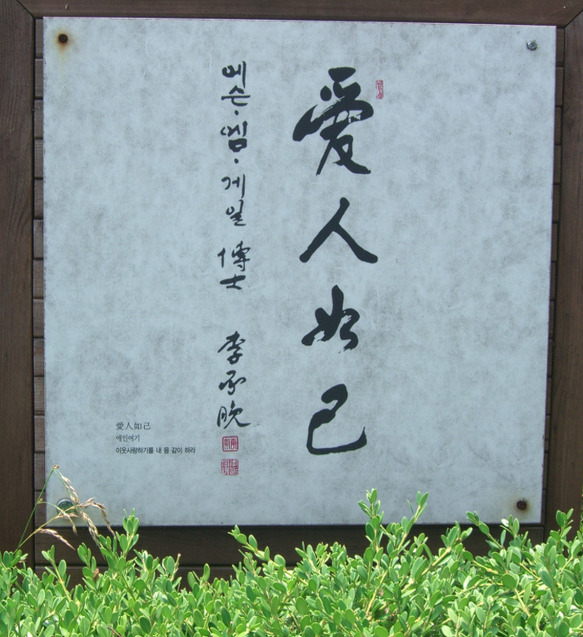 愛人如己
에슨·엠·게일 博士 李承晩
愛人如己
애인여기
이웃사랑하기를 내 몸 같이 하라